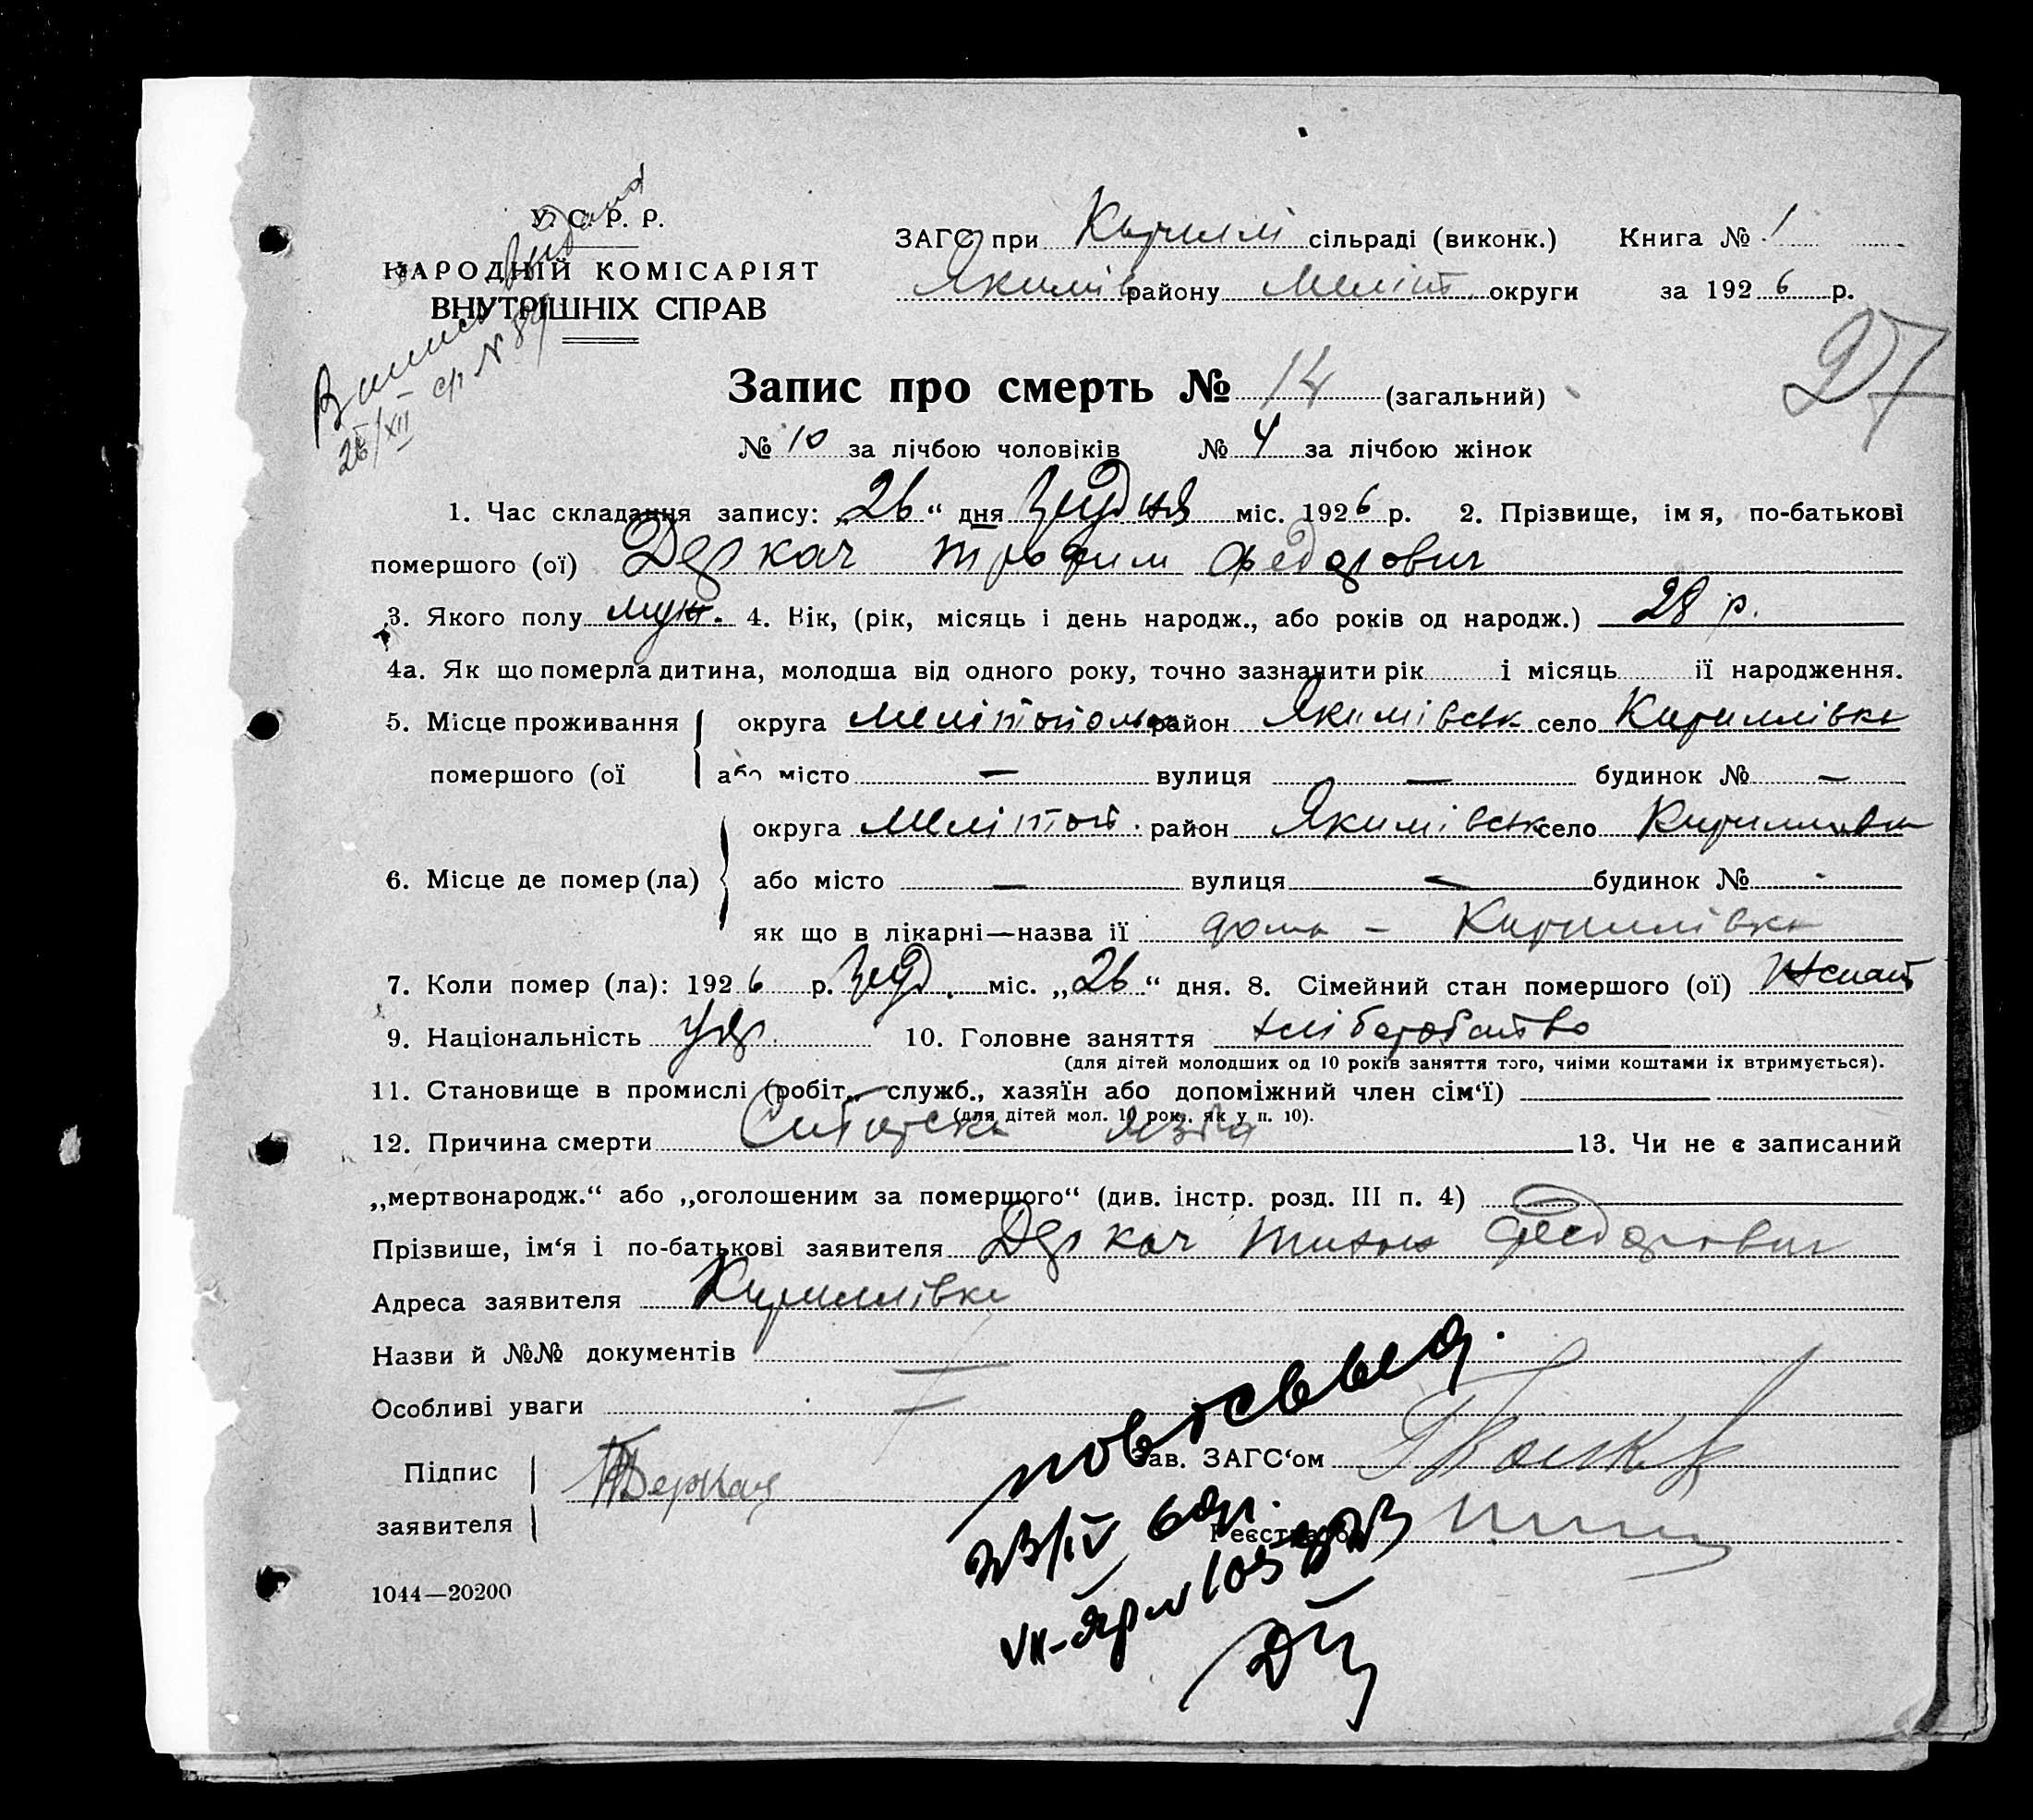 У. С. Р. Р.
НАРОДНІЙ КОМІСАРІЯТ
ВНУТРІШНІХ СПРАВ
Випись видана
26/XII ср № 89
ЗАГС при Кирилл сільраді (виконк.) Книга № 1
Якимів району Меліт. округи за 1926 р.
27
Запис про смерть № 14 (загальний)
№ 10 за лічбою чоловіків № 4 за лічбою жінок
1. Час складання запису: „26“ дня грудня міс. 1926 р. 2. Прізвище, імя, по-батькові
помершого (ої) Деркач Трофим Федорович
3. Якого полу муж. 4. Вік, (рік, місяць і день народж., або років од народж.) 28 р.
4а. Як що померла дитина, молодша від одного року, точно зазначити рік і місяць її народження.
5. Місце проживання округа Мелітопольск район Якимівськ село Кириллівка
помершого (ої або місто — вулиця — будинок № —
округа Мелітоп. район Якимівськ село Кириллівка
6. Місце де помер (ла) або місто — вулиця — будинок № -
як що в лікарні—назва її дома - Кириллівка
7. Коли помер (ла): 1926 р. груд. міс. „26“ дня. 8. Сімейний стан помершого (ої) Женат
9. Національність укр. 10. Головне заняття хліборобство
(для дітей молодших од 10 років заняття того, чиїми коштами їх втримується).
11. Становище в промислі (робіт., служб., хазяїн або допоміжний член сім‘ї)
(для дітей мол. 10 рок., як у п. 10).
12. Причина смерти Сибирска язва 13. Чи не є записаний
„мертвонародж.“ або „оголошеним за помершого“ (див. інстр. розд. III п. 4)
Прізвише, ім‘я і по-батькові заявителя Деркач Тихон Федорович
Адреса заявителя Кириллівка
Назви й №№ документів
Особливі уваги
Підпис Т Деркач Зав. ЗАГС‘ом
заявителя Реєстратор
23/IV 69г.
1044—20200